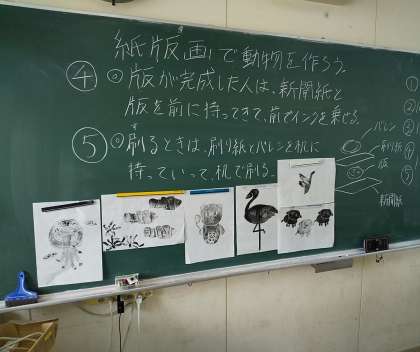 紙版画で動物を作ろう。
④◎版が完成した人は、新聞紙と
版を前に持ってきて、前でインクを乗せる。
⑤◎刷るときは、刷り紙とバレンを机に
持っていって、机で刷る。
バレン
刷り紙
版
新聞紙